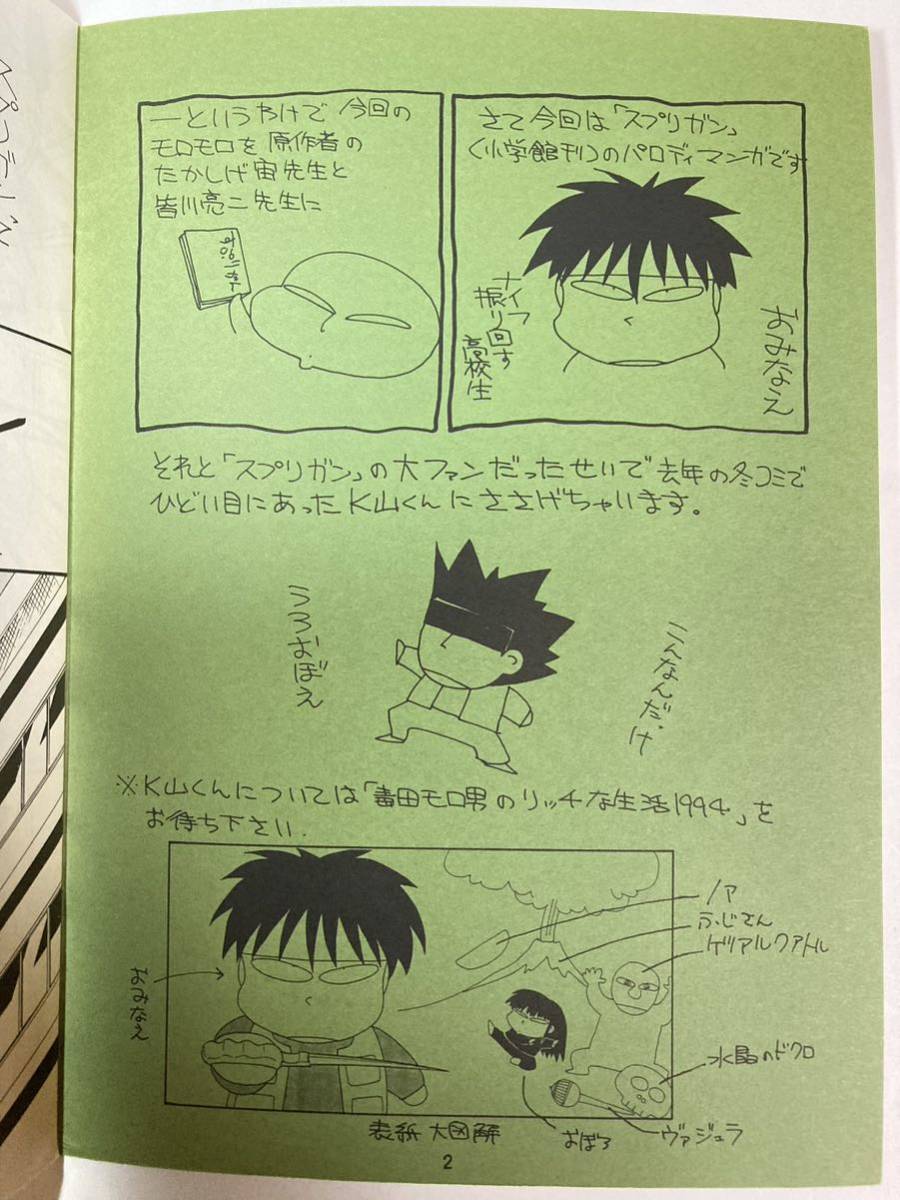 さて今回は「スプリガン」
(小学館刊)のパロディマンガです
おみなえ
ナイフ
振り回す
高校生
―というわけで今回の
モロモロを原作者の
たかしげ宙先生と
皆川亮二先生に
それと「スプリガン」の大ファンだったせいで去年の冬コミで
ひどい目にあったK山くんにささげちゃいます。
こんなんだっけ
うろおぼえ
※K山くんについては「毒田モロ男のリッチな生活1994」を
お待ち下さい.
ノア
ふじさん
ゲツアルクアトル
おみなえ
水晶のドクロ
ヴァジュラ
おぼろ
表紙大図解
2